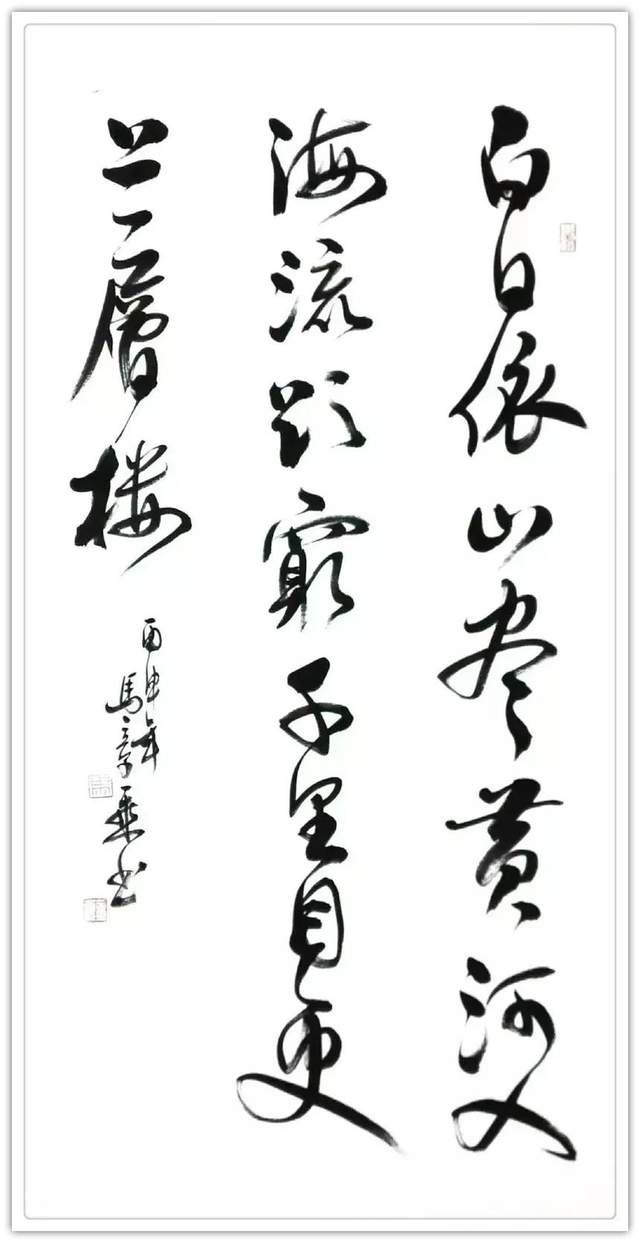 白日依山尽黄河入
海流欲窮千里目更
上一層楼
丙申年
馬 书